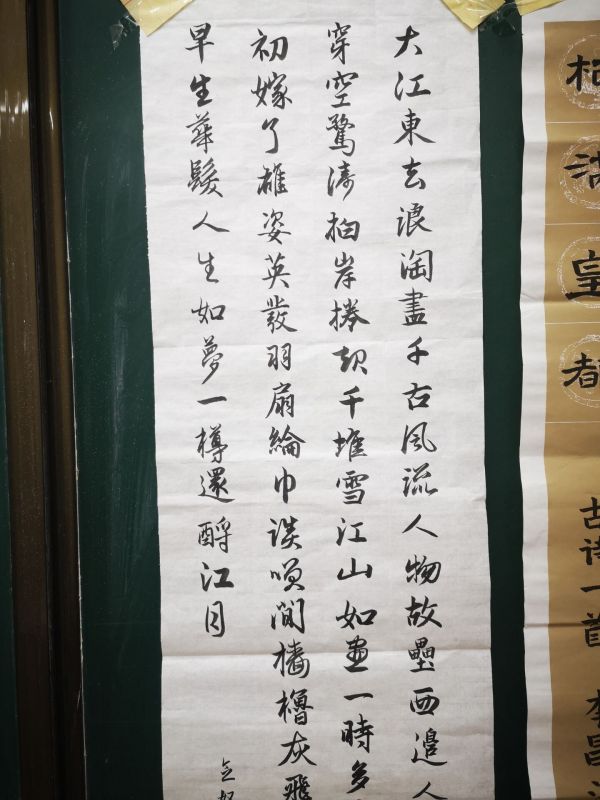 大江東去浪淘盡千古風流人物故壘西邊人
穿空驚濤拍岸捲起千堆雪江山如畫一時多
初嫁了雄姿英發羽扇綸巾談咲間檣櫓灰飛
早生華髮人生如夢一樽還酹江月
念奴
皇都
古诗一首 李昌